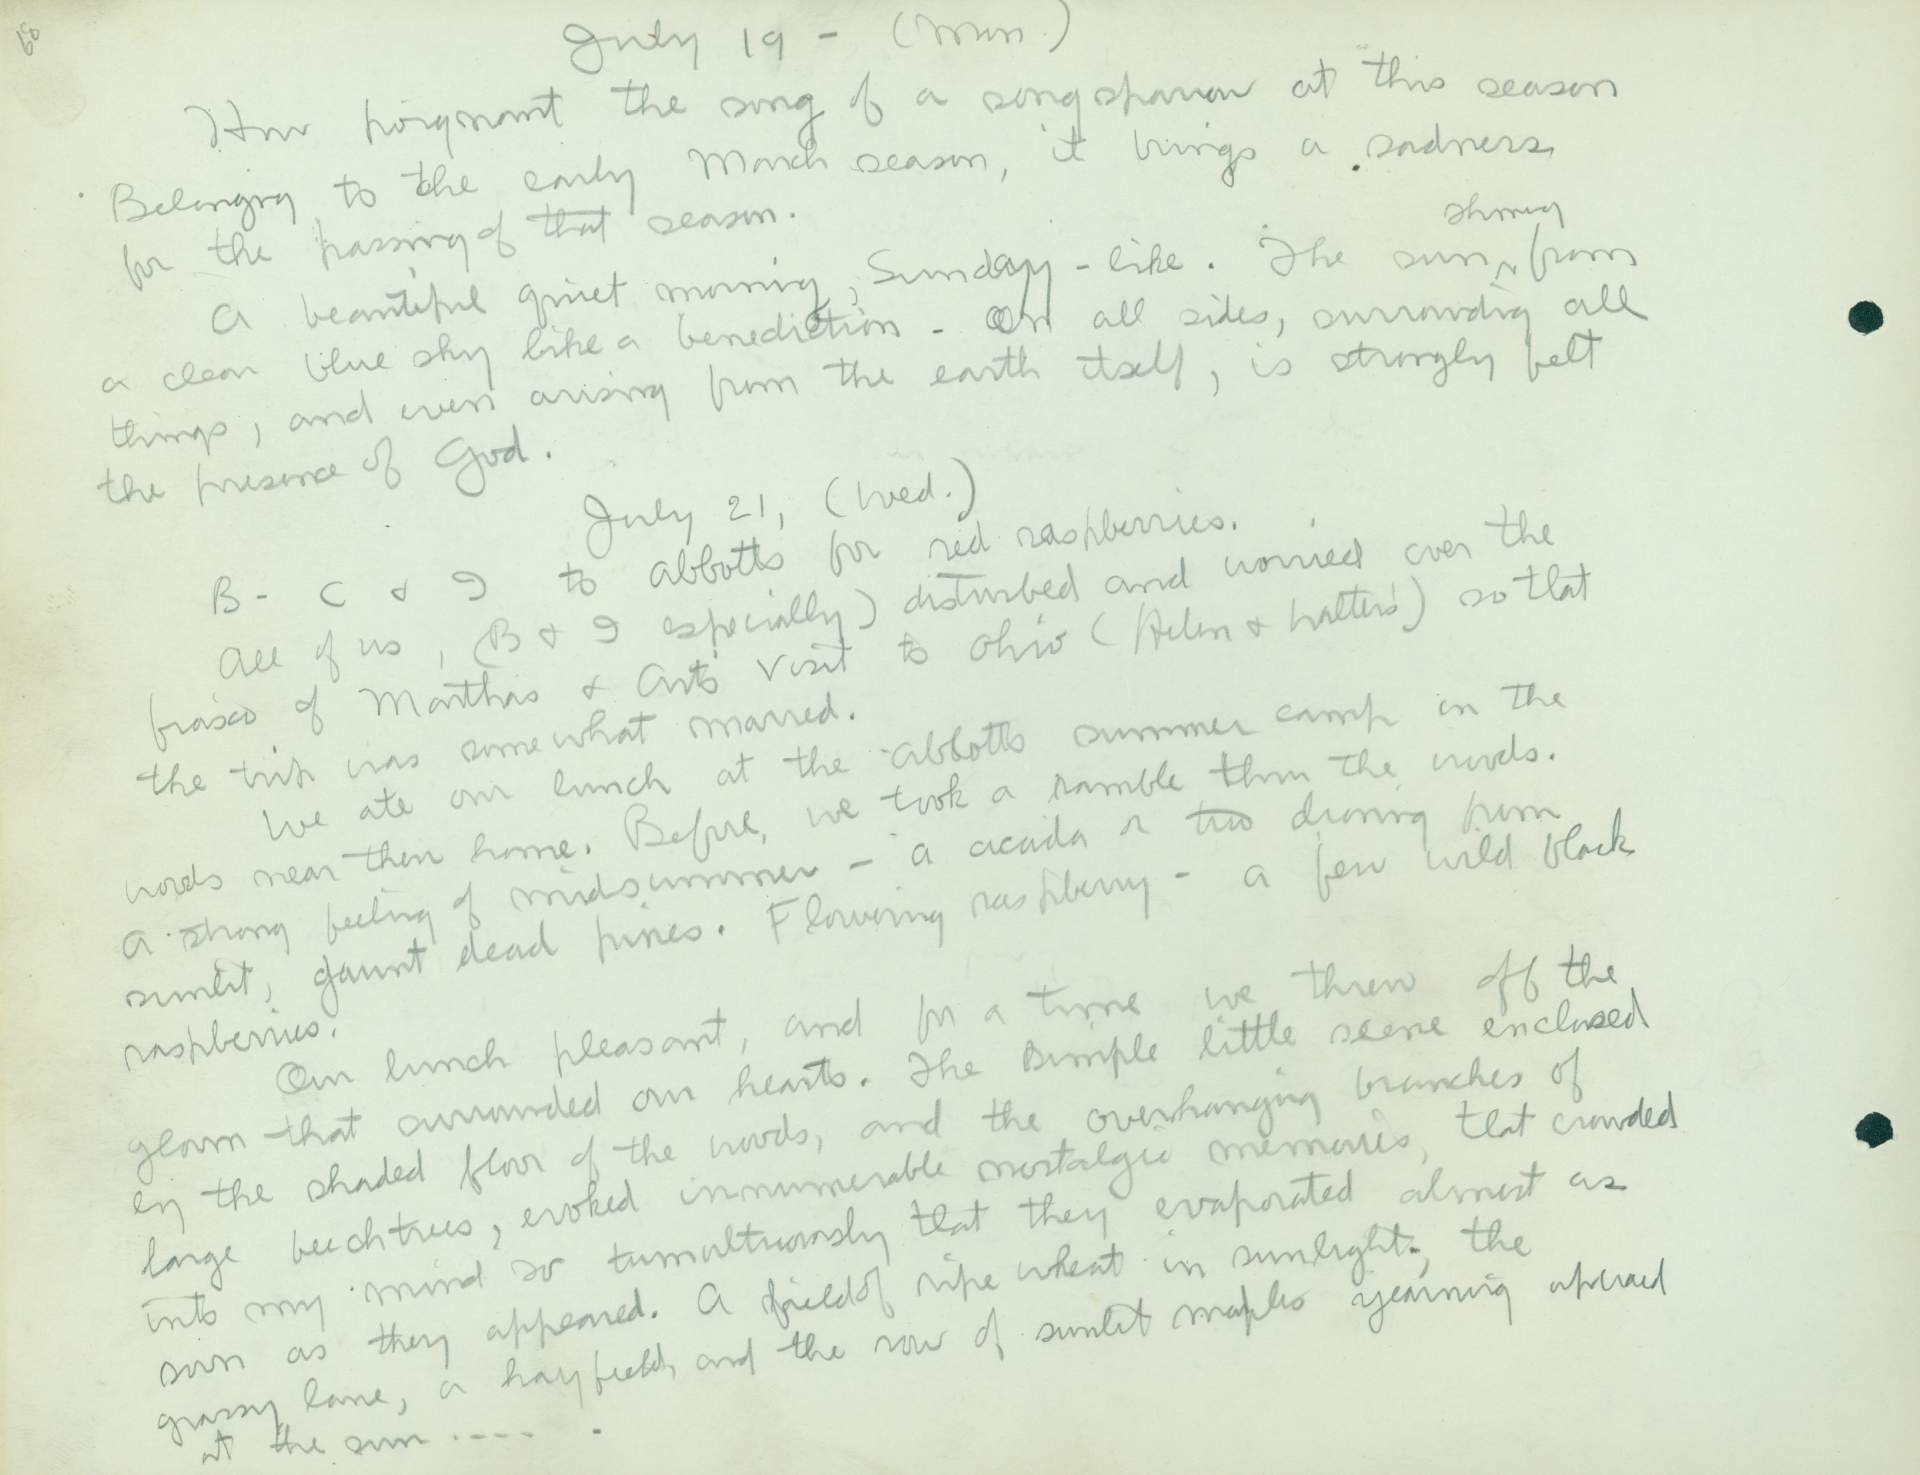 39
July 19 - (Mon.)
How poignant the song of a song sparrow at this season
Belonging to the early March season, it brings a sadness
for the passing of that season.
A beautiful quiet morning, Sunday-like. The sun shining from
a clear blue sky like a benediction - On all sides, surrounding all
things, and even arising from the earth itself, is strongly felt
the presence of God.
July 21, (Wed.)
B - C & I to Abbotts for red raspberries.
All of us, (B & I especially) disturbed and worried over the
fiasco of Martha's & Art's visit to Ohio (Helen & Walter's) so that
the trip was somewhat marred.
We ate our lunch at the Abbotts summer camp in the
woods near their home. Before, we took a ramble thru the woods.
A strong feeling of midsummer - a cicada or two droning from
sunlit, gaunt dead pines. Flowering raspberry - a few wild black
raspberries.
Our lunch pleasant, and for a time we threw off the
gloom that surrounded our hearts. The simple little scene enclosed
by the shaded floor of the woods, and the overhanging branches of
large beech trees, evoked innumerable nostalgic memories, that crowded
into my mind so tumultuously that they evaporated almost as
soon as they appeared. A field of ripe wheat in sunlight, the
grassy lane, a hayfield, and the row of sunlit maples yearning upward
at the sun ..... .